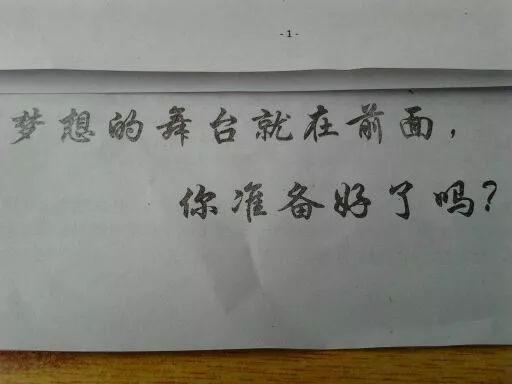 -1-
梦想的舞台就在前面，
你准备好了吗？